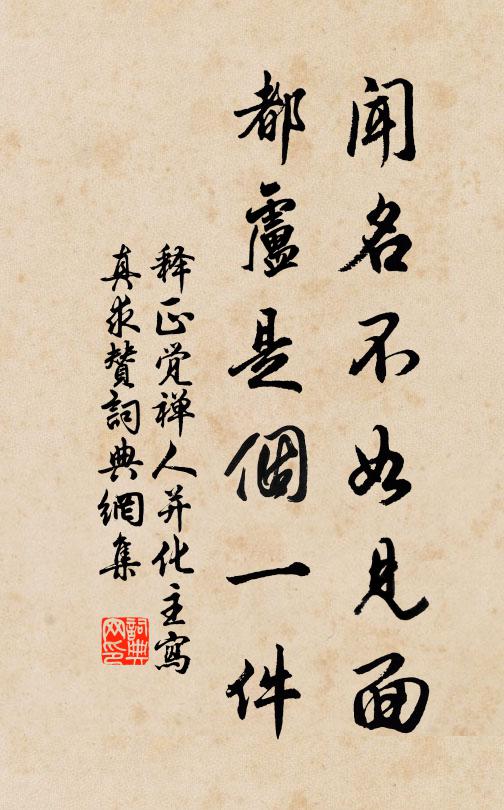 闻名不如見面
都盧是個一件
释正觉禅人并化主寫
真求赞詞典網集
詞典
网印